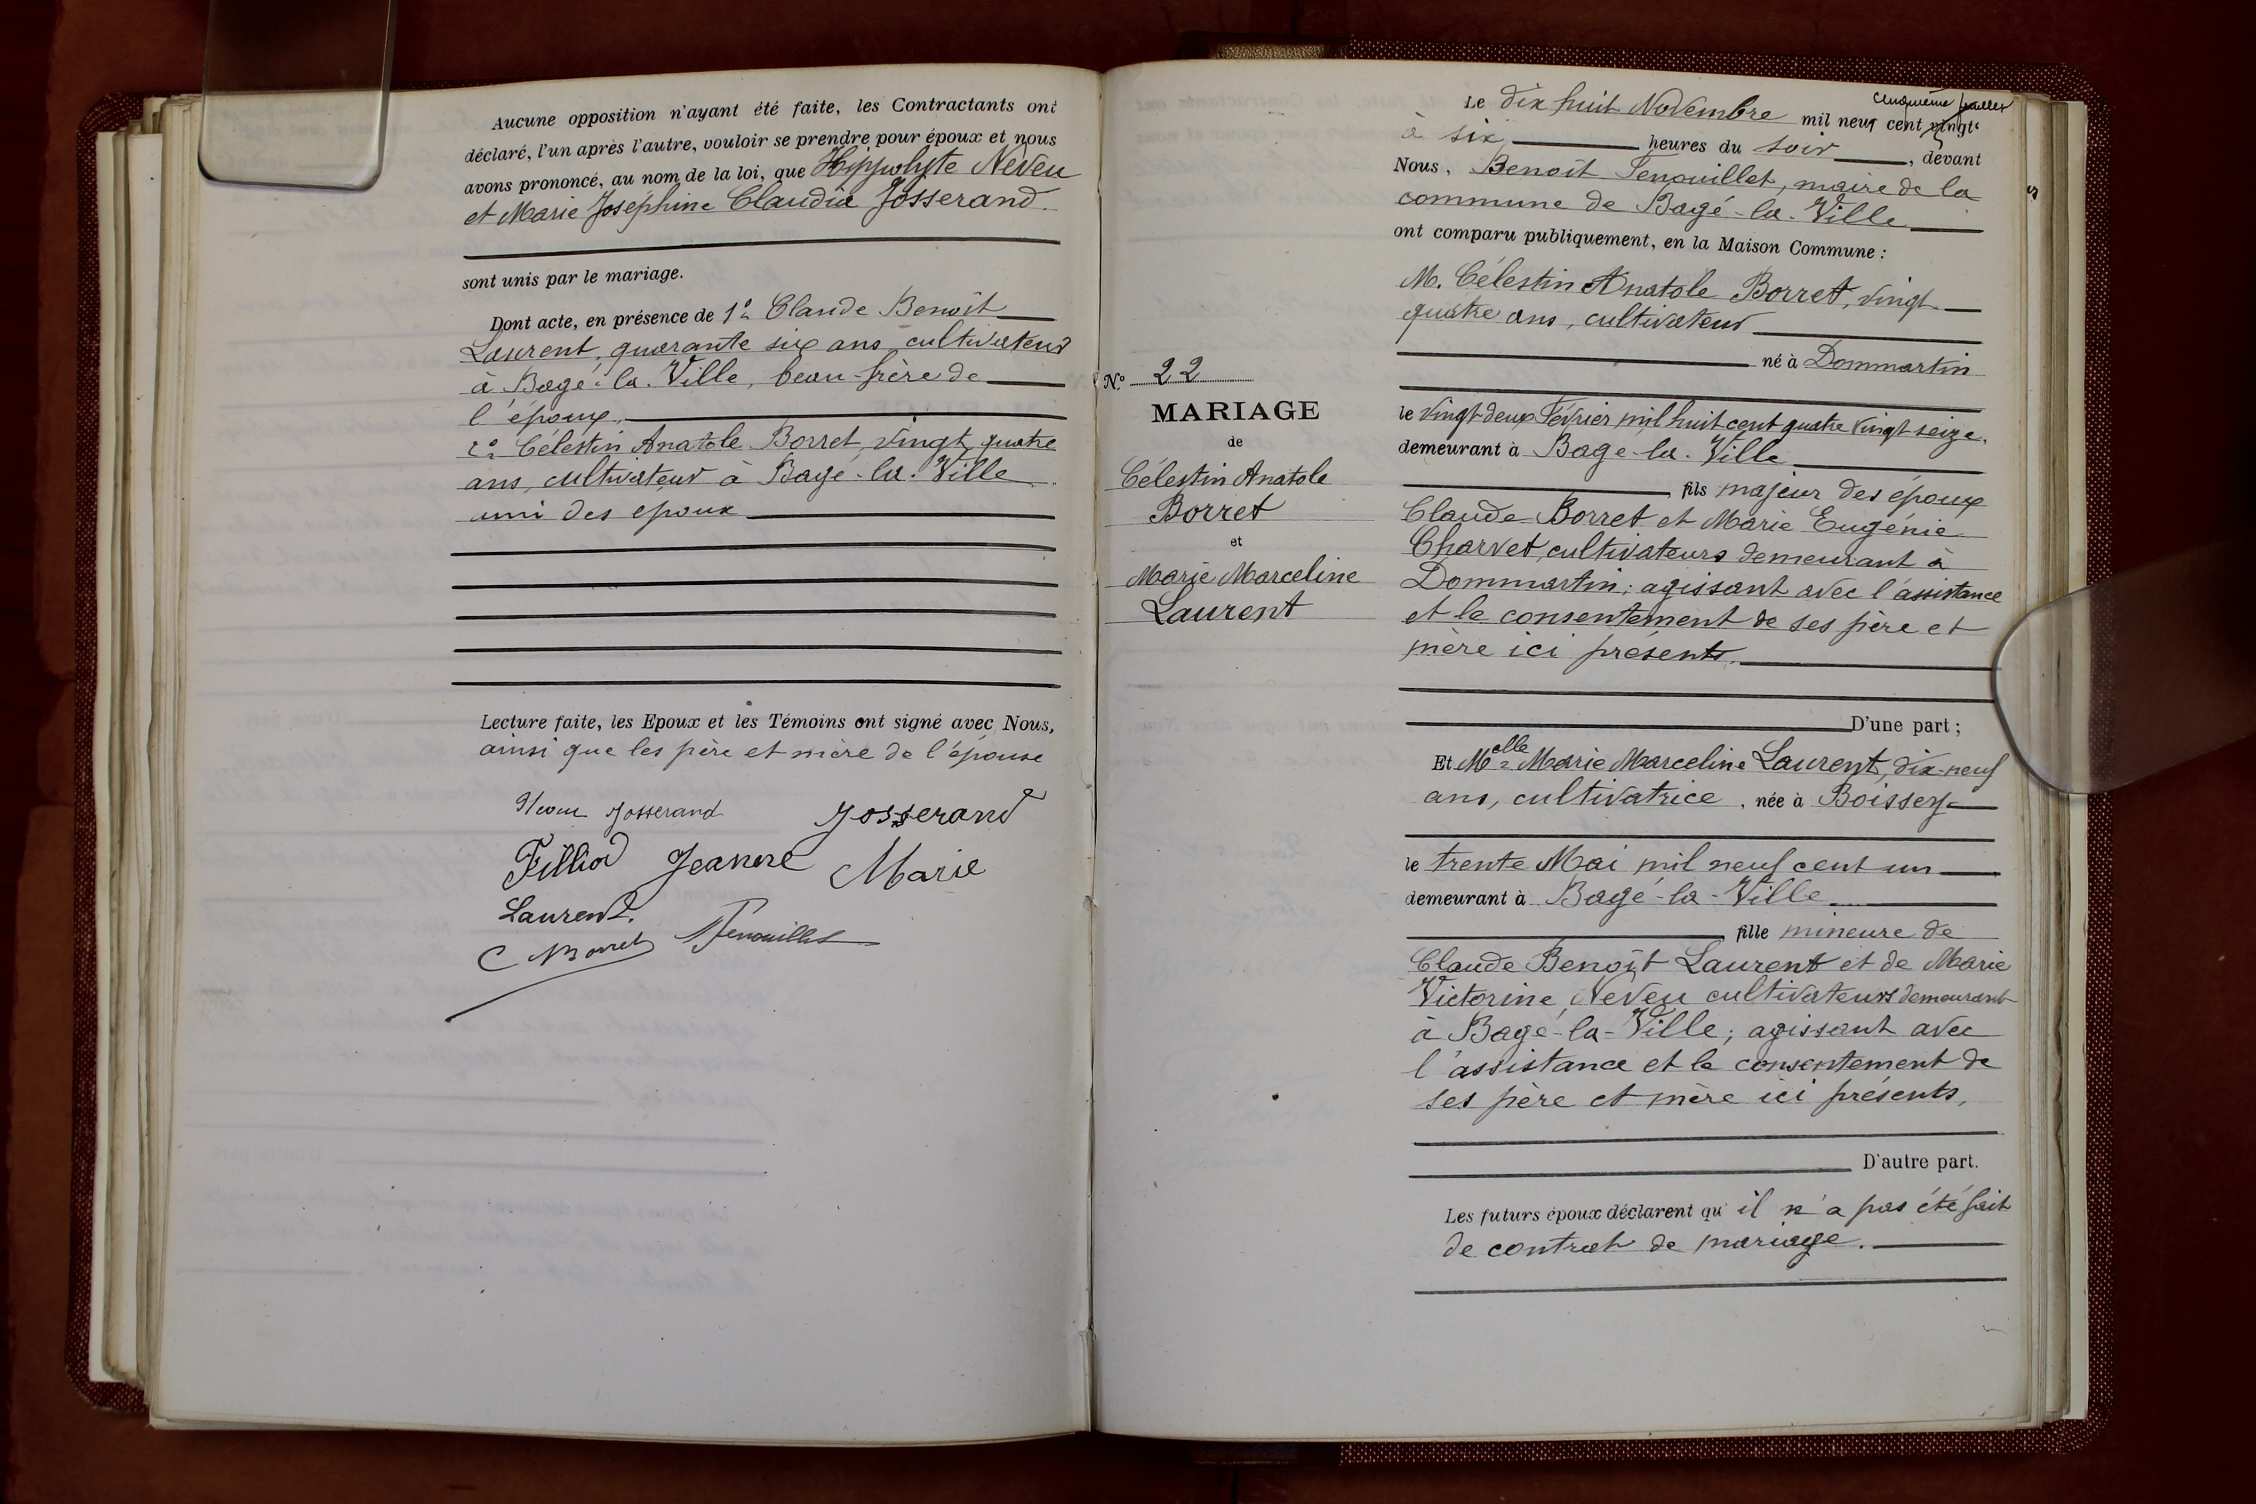 Aucune opposition n'ayant été faite, les Contractants ont
déclaré, l'un après l'autre, vouloir se prendre pour époux et nous
avons prononcé, au nom de la loi, que Hippolyte Neveu
et Marie Joséphine Claudia Josserand
sont unis par le mariage.
Dont acte, en présence de 1° Claude Benoît
Laurent, quarante six ans, cultivateur
à Bagé-la-Ville, beau-frère de
l'époux,
2° Célestin Anatole Borret, vingt quatre
ans, cultivateur à Bagé-la-Ville
ami des époux
Lecture faite, les Epoux et les Témoins ont signé avec Nous,
ainsi que les père et mère de l'épouse
Josserand Josserand
Filliod Jeanne Marie
Laurent.
C Borret Fenouillet
cinquième feuillet
Le dix huit Novembre mil neuf cent vingt
à six heures du soir, devant
Nous, Benoît Fenouillet, maire de la
commune de Bagé-la-Ville
ont comparu publiquement, en la Maison Commune :
M. Célestin Anatole Borret, vingt
quatre ans, cultivateur
né à Dommartin
le vingt-deux Février mil huit cent quatre vingt seize,
demeurant à Bagé-la-Ville
fils majeur des époux
Claude Borret et Marie Eugénie
Charvet, cultivateurs demeurant à
Dommartin; agissant avec l'assistance
et le consentement de ses père et
mère ici présents.
D'une part ;
Et Melle Marie Marceline Laurent, dix-neuf
ans, cultivatrice, née à Boissey
le trente Mai mil neuf cent un
demeurant à Bagé-la-Ville
fille mineure de
Claude Benoît Laurent et de Marie
Victorine Neveu cultivateurs demeurant
à Bagé-la-Ville; agissant avec
l'assistance et le consentement de
ses père et mère ici présents,
D'autre part.
Les futurs époux déclarent qu'il n'a pas été fait
de contrat de mariage.
N° 22
MARIAGE
de
Célestin Anatole
Borret
et
Marie Marceline
Laurent